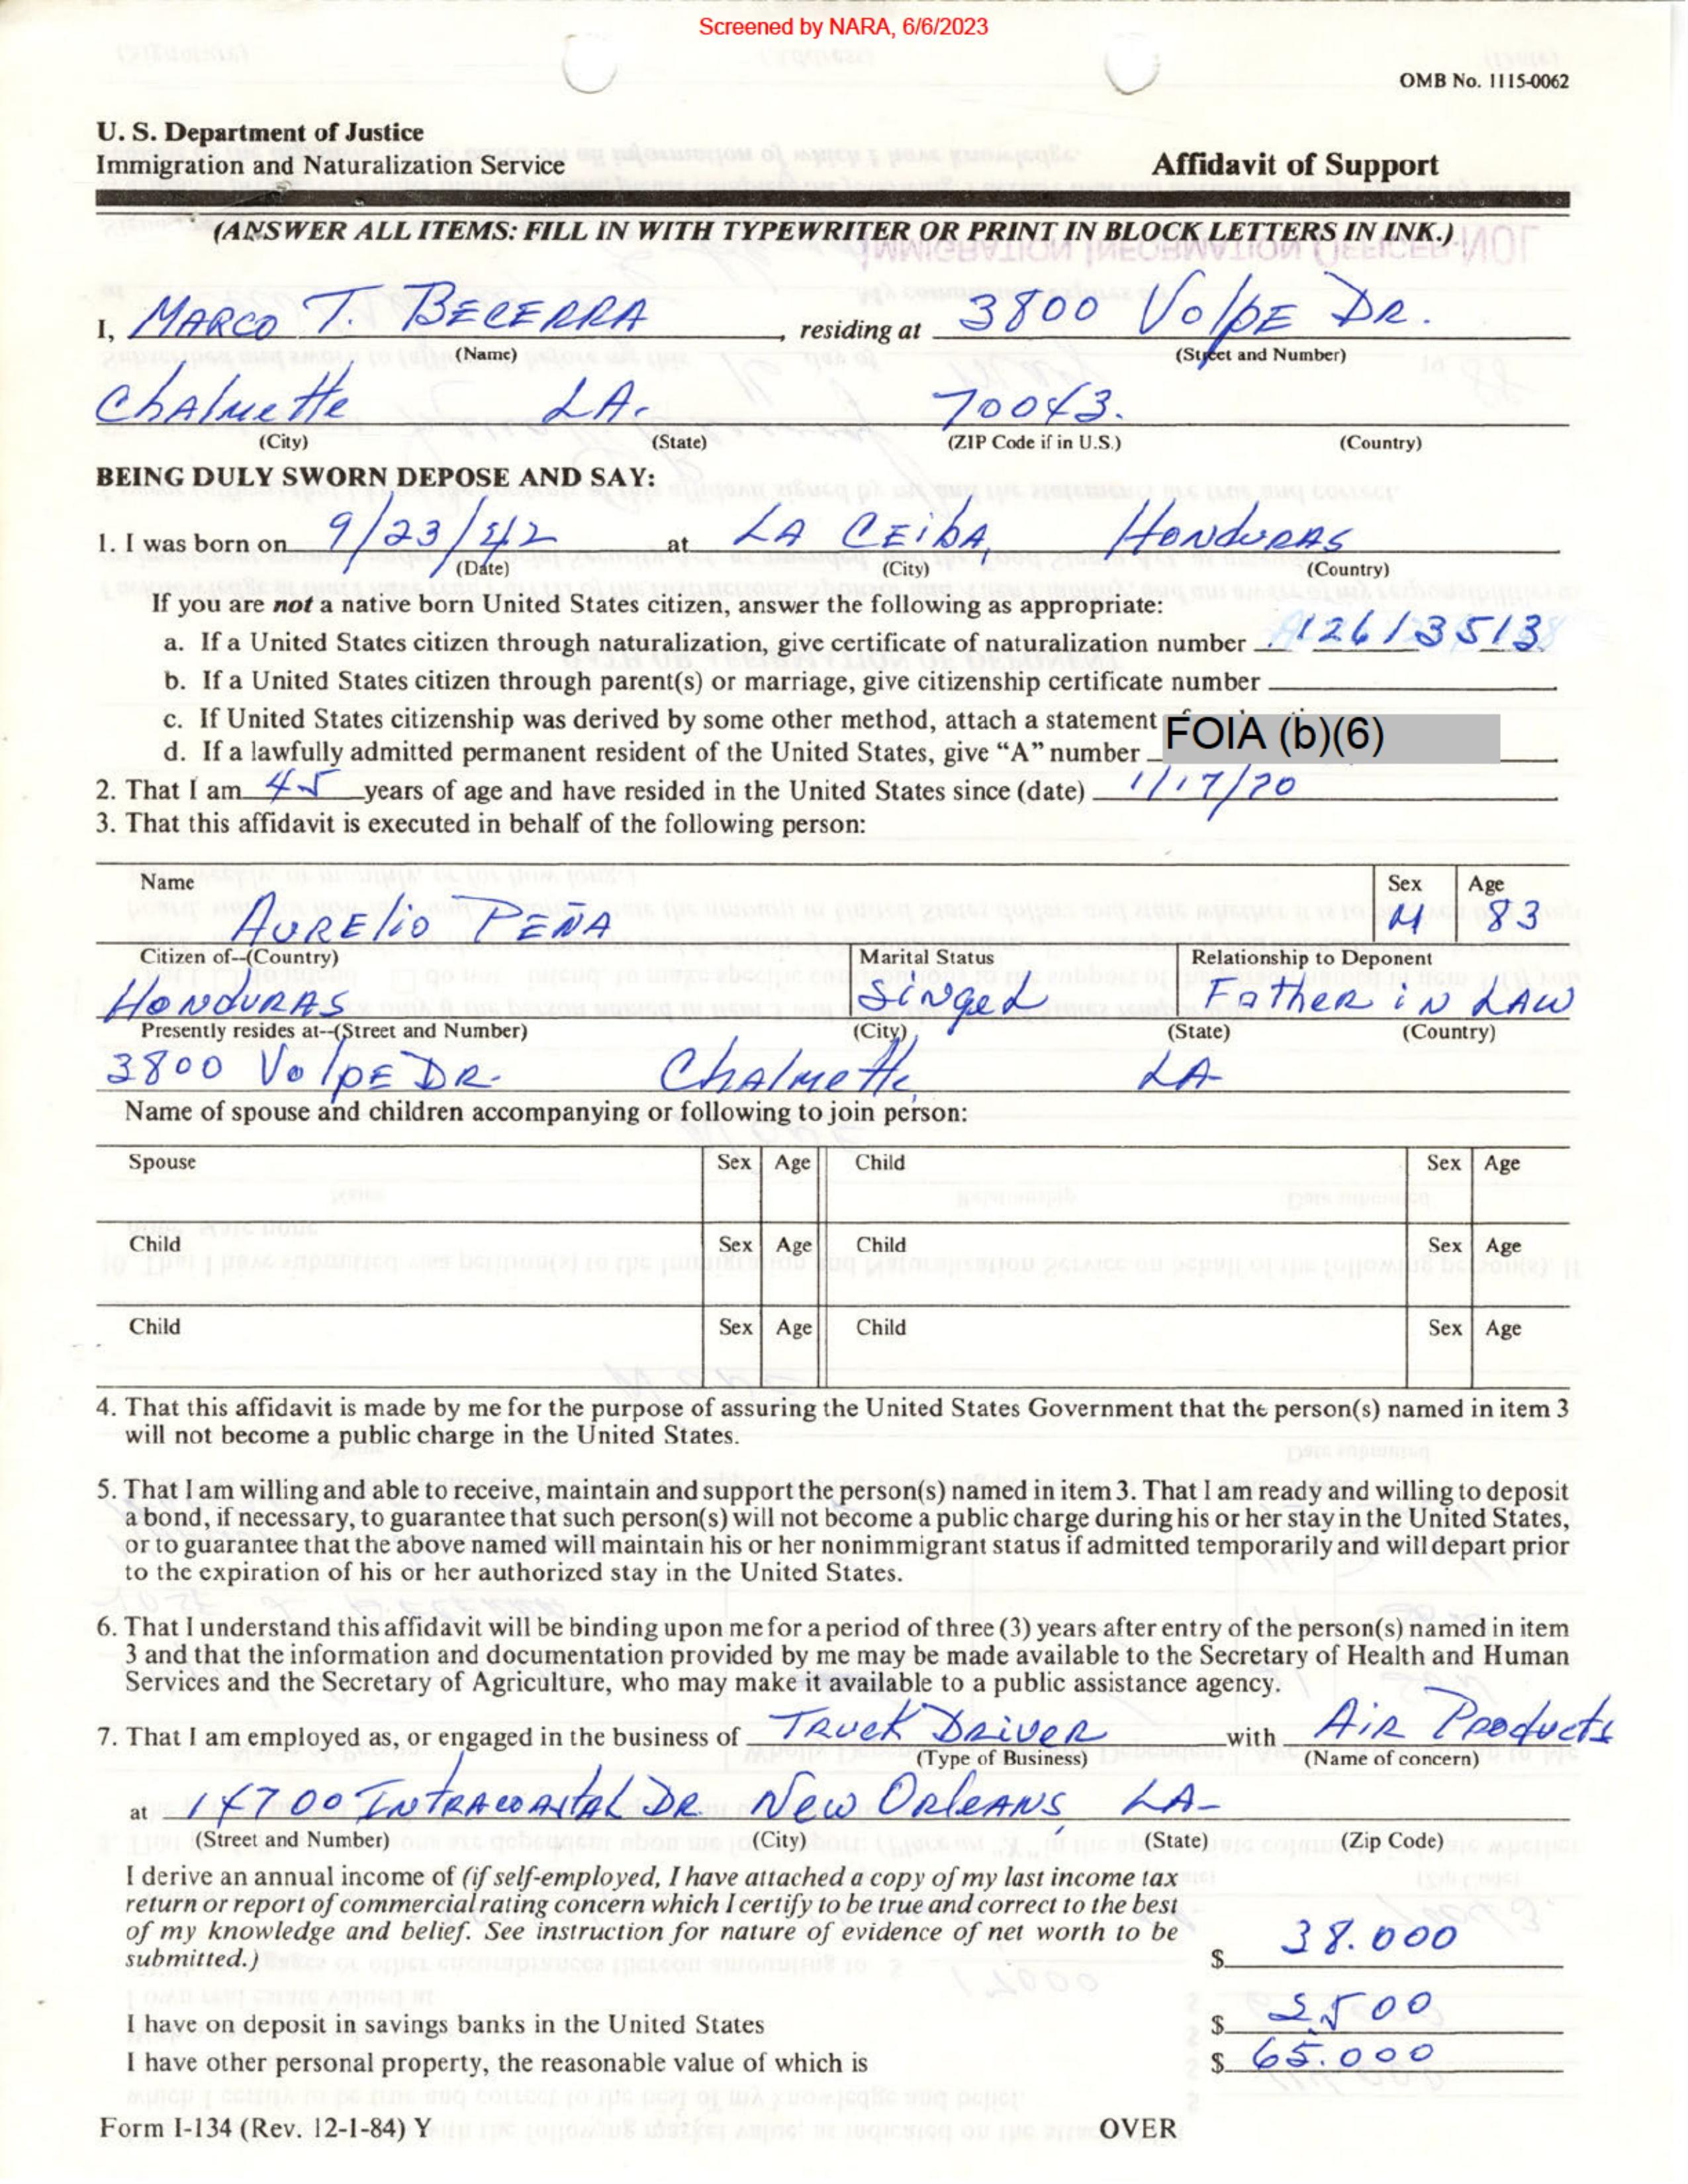 Screened by NARA, 6/6/2023
OMB No. 1115-0062
U. S. Department of Justice
Immigration and Naturalization Service
Affidavit of Support
(ANSWER ALL ITEMS: FILL IN WITH TYPEWRITER OR PRINT IN BLOCK LETTERS IN INK.)
I, MARCO T. BECERRA, residing at 3800 VolpE DR.
(Name) (Street and Number)
ChAlmette LA. 70043.
(City) (State) (ZIP Code if in U.S.) (Country)
BEING DULY SWORN DEPOSE AND SAY:
1. I was born on 9/23/42 at LA CEibA, HONDURAS
(Date) (City) (Country)
If you are not a native born United States citizen, answer the following as appropriate:
a. If a United States citizen through naturalization, give certificate of naturalization number 12613513
b. If a United States citizen through parent(s) or marriage, give citizenship certificate number
c. If United States citizenship was derived by some other method, attach a statement
d. If a lawfully admitted permanent resident of the United States, give "A" number FOIA (b)(6)
2. That I am 45 years of age and have resided in the United States since (date) 1/17/70
3. That this affidavit is executed in behalf of the following person:
Name Sex Age
AURELIO PEÑA M 83
Citizen of--(Country) Marital Status Relationship to Deponent
HONDURAS SiNgel FatHER iN LAW
Presently resides at--(Street and Number) (City) (State) (Country)
3800 VolpE DR. ChAlmette, LA
Name of spouse and children accompanying or following to join person:
Spouse Sex Age Child Sex Age
Child Sex Age Child Sex Age
Child Sex Age Child Sex Age
4. That this affidavit is made by me for the purpose of assuring the United States Government that the person(s) named in item 3
will not become a public charge in the United States.
5. That I am willing and able to receive, maintain and support the person(s) named in item 3. That I am ready and willing to deposit
a bond, if necessary, to guarantee that such person(s) will not become a public charge during his or her stay in the United States,
or to guarantee that the above named will maintain his or her nonimmigrant status if admitted temporarily and will depart prior
to the expiration of his or her authorized stay in the United States.
6. That I understand this affidavit will be binding upon me for a period of three (3) years after entry of the person(s) named in item
3 and that the information and documentation provided by me may be made available to the Secretary of Health and Human
Services and the Secretary of Agriculture, who may make it available to a public assistance agency.
7. That I am employed as, or engaged in the business of TRucK DRiVER with AiR Products
(Type of Business) (Name of concern)
at 14700 INTRACOAstAL DR. New ORleANS, LA-
(Street and Number) (City) (State) (Zip Code)
I derive an annual income of (if self-employed, I have attached a copy of my last income tax
return or report of commercial rating concern which I certify to be true and correct to the best
of my knowledge and belief. See instruction for nature of evidence of net worth to be
submitted.) $ 38.000
I have on deposit in savings banks in the United States $ 2500
I have other personal property, the reasonable value of which is $ 65.000
Form I-134 (Rev. 12-1-84) Y OVER